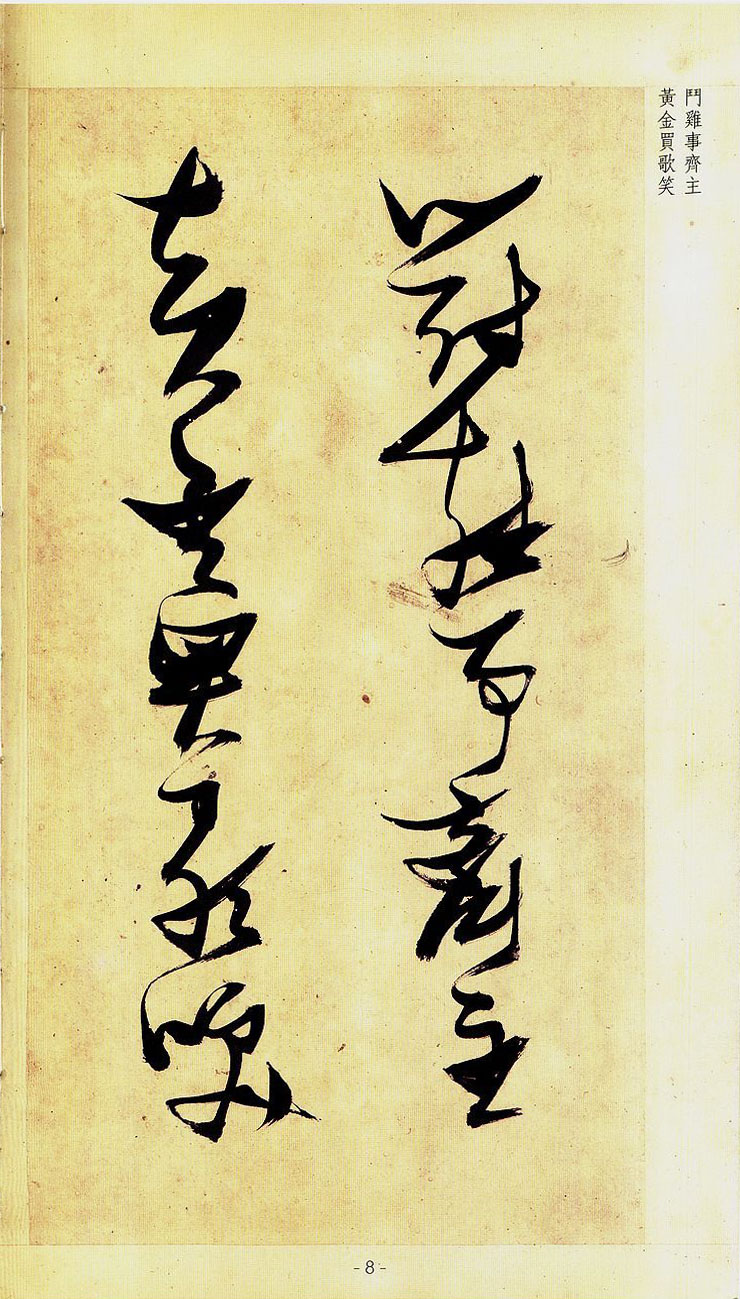 鬥雞事齊主
黃金買歌笑
鬥雞事齊主
黃金買歌笑
- 8 -